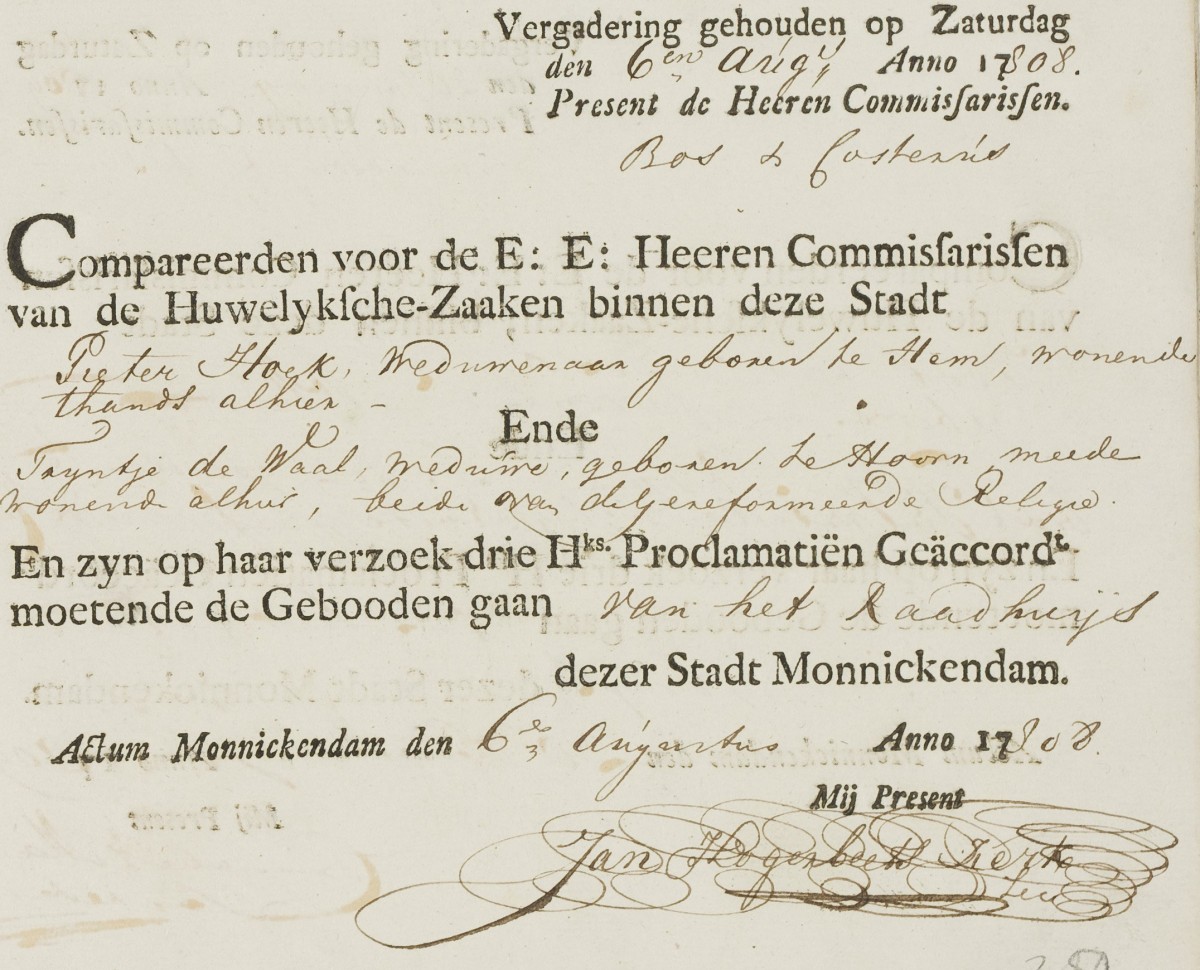 Vergadering gehouden op Zaturdag
den 6en Augt Anno 1808.
Present de Heeren Commiſſariſſen.
Bos & Costerus
Compareerden voor de E: E: Heeren Commisſarisſen
van de Huwelykſche-Zaaken binnen deze Stadt
Pieter Hoek, Weduwenaar geboren te Hem, wonende
thands alhier -
Ende
Tryntje de Waal, weduwe, geboren te Hoorn, meede
wonende alhier, beide van de Gereformeerde Religie.
En zyn op haar verzoek drie Hks. Proclamatiën Geäccordt.
moetende de Gebooden gaan van het Raadhuijs
dezer Stadt Monnickendam.
Actum Monnickendam den 6e Augustus Anno 1808.
Mij Present
Jan Hogerbeets Kerk